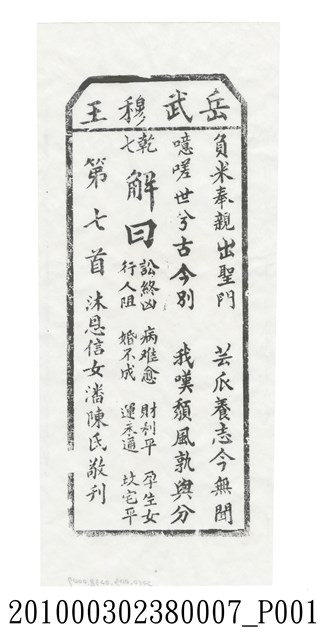 岳武穆王
負米奉親出聖門　芸瓜養志今無聞
噫嗟世兮古今別　我嘆頹風孰與分
乾七
解曰
訟終凶　病难愈　財利平　孕生女
行人阻　婚不成　運未通　坟宅平
第七首　沐恩信女潘陳氏敬刊
201000302380007_P001